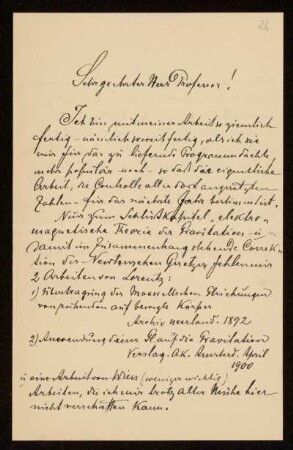 26
Sehr geehrter Herr Professor!
Ich bin mit meiner Arbeit ziemlich
fertig – nämlich soweit fertig, als ich sie
mir für das zu liefernde Programm dachte
mehr populär noch – so daß die eigentliche
Arbeit, die Controlle aller dort angeführten
Zahlen – für das nächste Jahr bestimmt ist.
Nur zum Schlußkapitel, elektro-
magnetische Theorie der Gravitation – u.
damit im Zusammenhang stehende Correk-
tion des Newtonschen Gesetzes fehlen mir
2 Arbeiten von Lorentz:
1) Übertragung der Maxwellschen Gleichungen
von ruhenden auf bewegte Körper
Archiv neerland. 1892
2) Anwendung dieser auf die Gravitation
Verslag. Ak. Amsterd. April
1900
u. eine Arbeit von Wien (weniger wichtig)
Arbeiten, die ich mir trotz aller Mühe hier
nicht verschaffen kann.